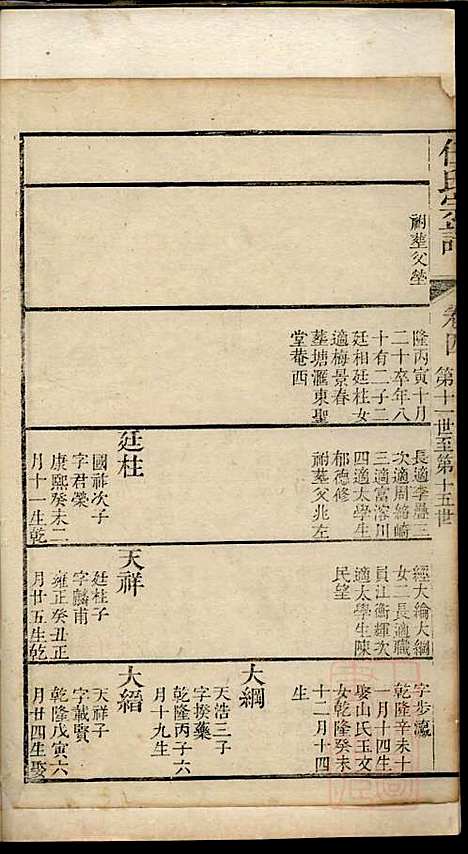 任氏宗譜
卷四
第十一世至第十五世
祔塟父塋
隆丙寅十月
二十卒年八
十有二子二
廷相廷柱女
適梅景春
塟塘滙東聖
堂菴西
長適李壘三
次適周𦂶崎
三適富溶川
四適太學生
郁德修
祔塟父兆左
廷柱
國祚次子
字君榮
康熙癸未二
月十一生乾
經大綸大綱
女二長適職
員江衡輝次
適太學生陳
民望
天祥
廷柱子
字麟甫
雍正癸丑正
月廿五生乾
字步瀛
乾隆辛未十
一月十四生
娶山氏玉文
女乾隆癸未
十二月十四
生
大綱
天浩三子
字揆藥
乾隆丙子六
月十九生
大縉
天祥子
字載賢
乾隆戊寅六
月廿四生娶